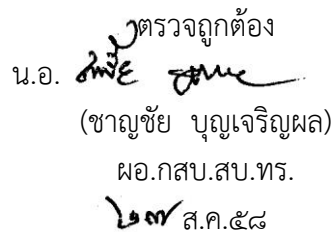 ตรวจถูกต้อง
น.อ.
(ชาญชัย บุญเจริญผล)
ผอ.กสบ.สบ.ทร.
๒๗ ส.ค.๕๘